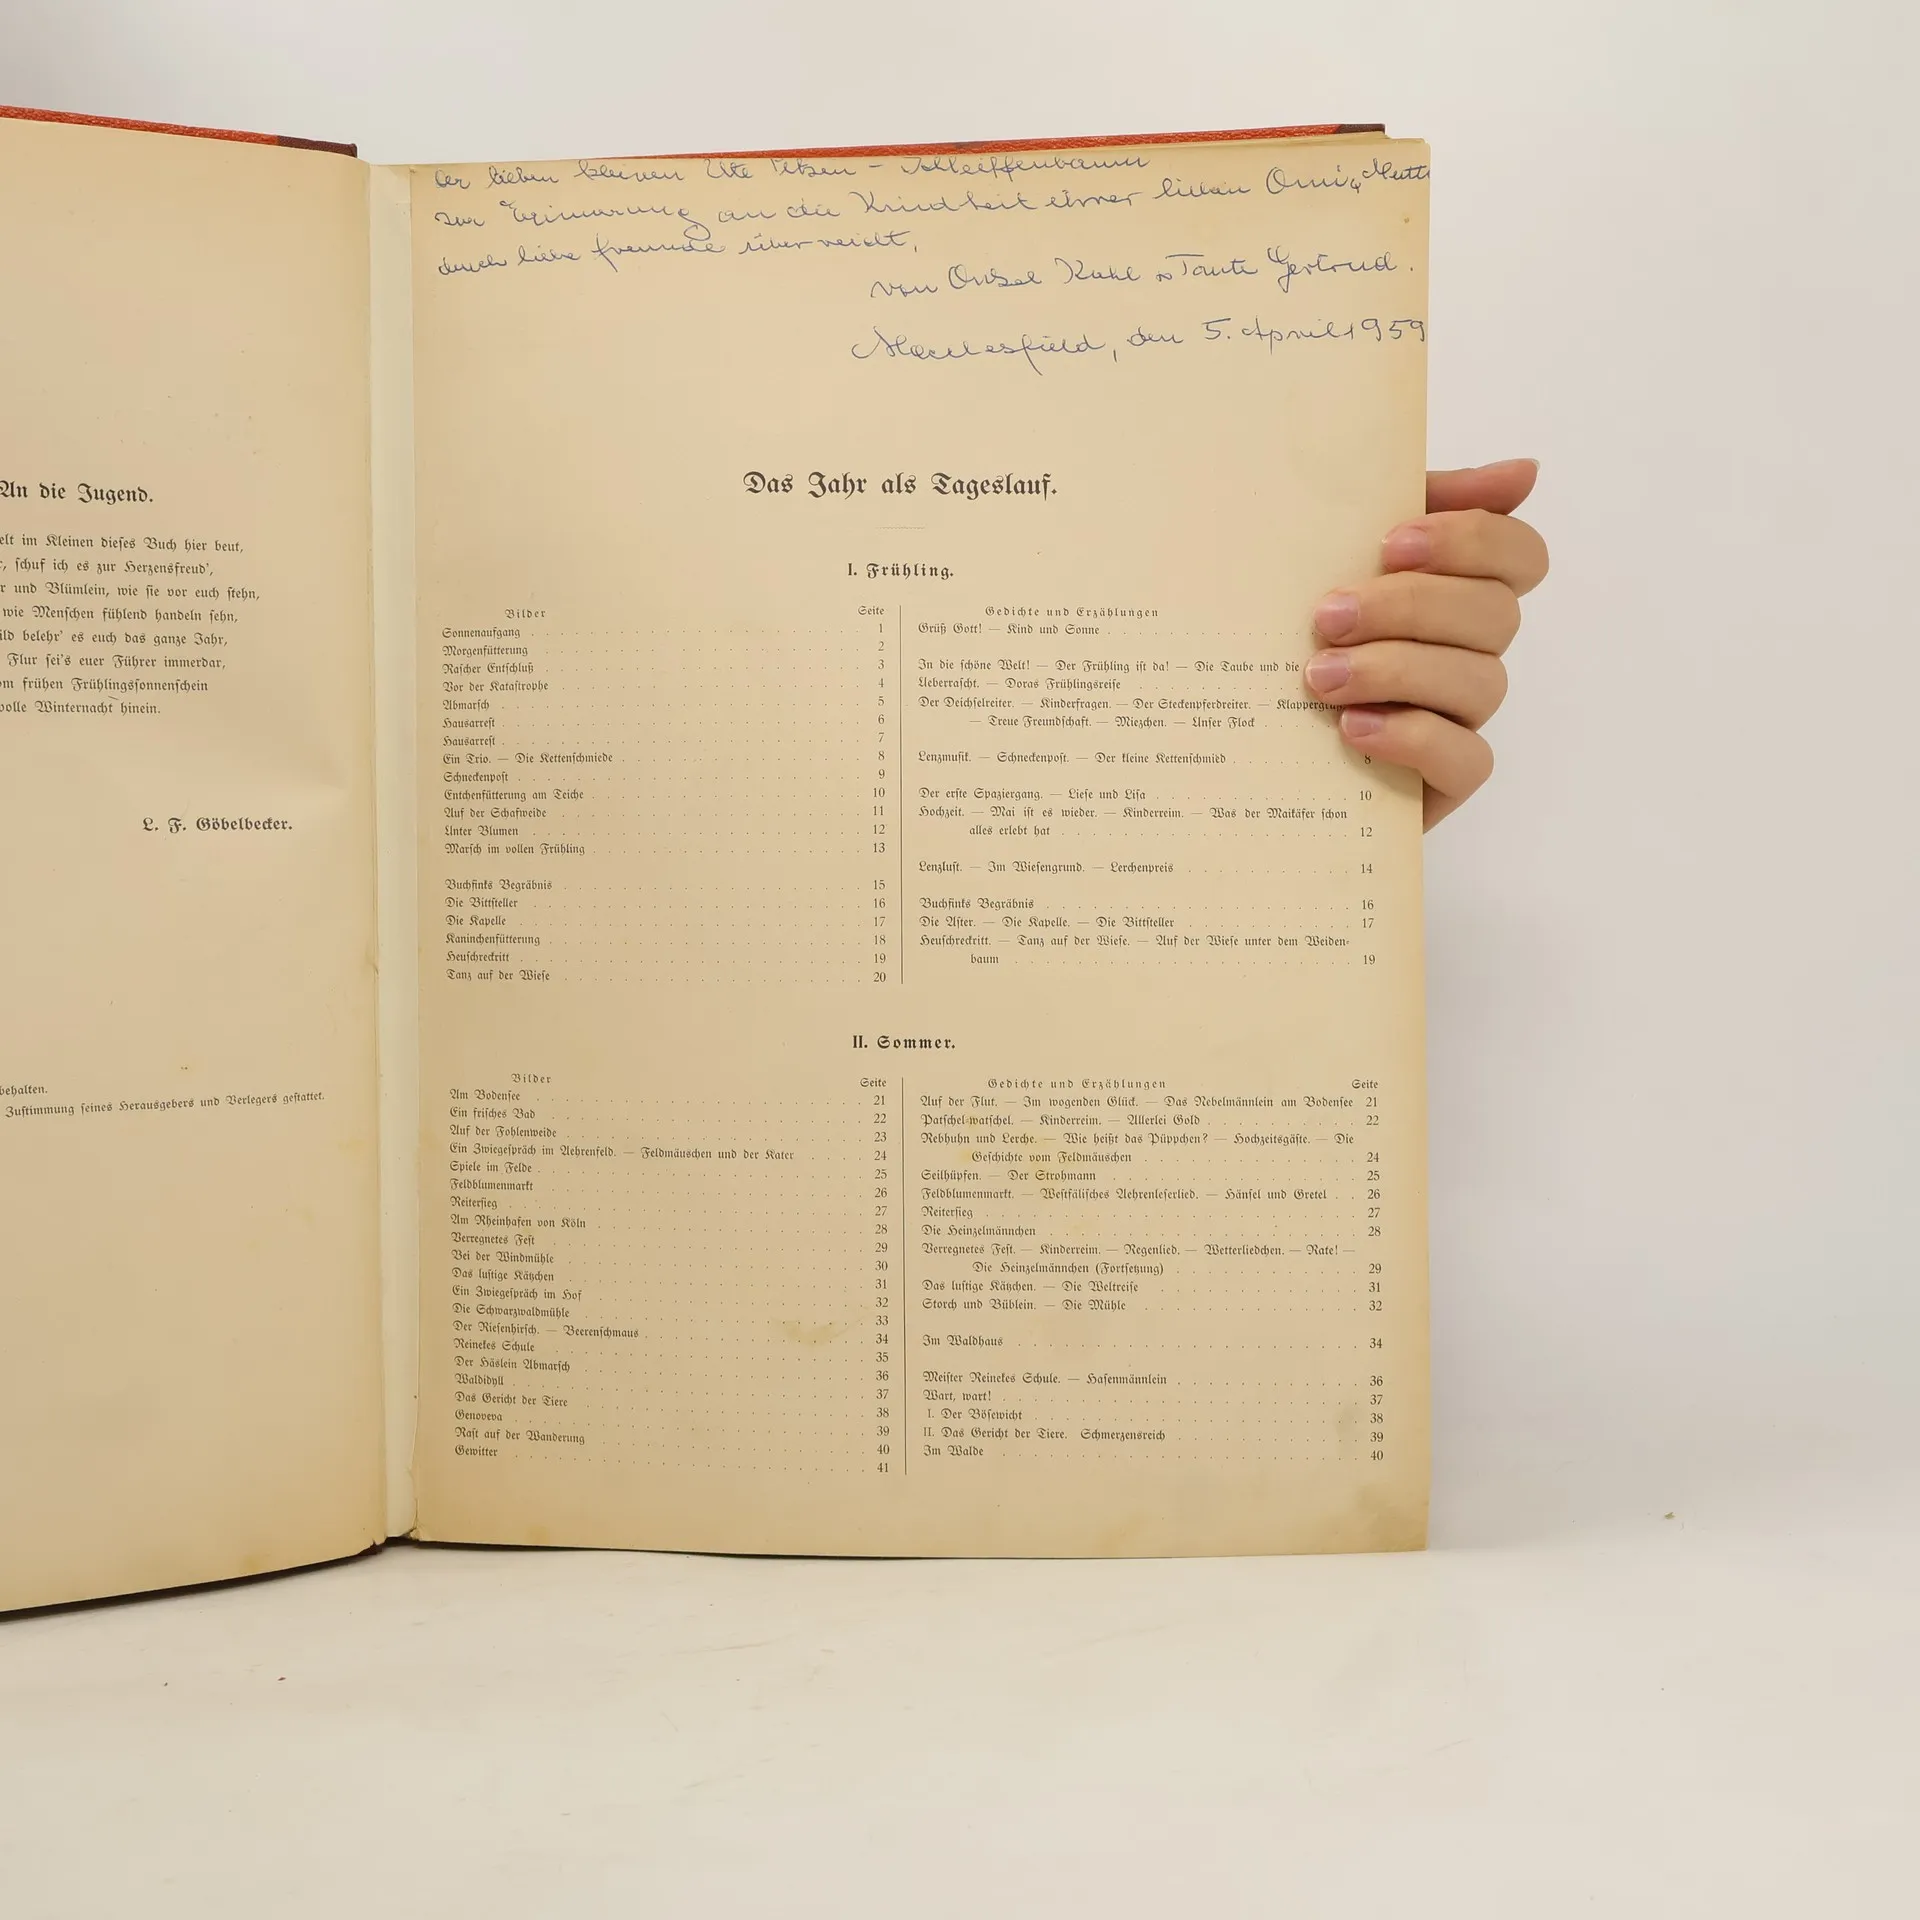 An die Jugend.
elt im Kleinen dieſes Buch hier beut,
, ſchuf ich es zur Herzensfreud',
r und Blümlein, wie ſie vor euch ſtehn,
wie Menſchen fühlend handeln ſehn,
ild belehr' es euch das ganze Jahr,
Flur ſei's euer Führer immerdar,
om frühen Frühlingsſonnenſchein
volle Winternacht hinein.
L. F. Göbelbecker.
behalten.
Zuſtimmung ſeines Herausgebers und Verlegers geſtattet.
der lieben kleinen Ute - Schleiffenbaum
zur Erinnerung an die Kindheit ihrer lieben Omi
durch liebe Freunde überreicht,
von Onkel Tante Gertrud.
Macclesfield, den 5. April 1959
Das Jahr als Tageslauf.
I. Frühling.
Bilder Seite
Sonnenaufgang 1
Morgenfütterung 2
Raſcher Entſchluß 3
Vor der Kataſtrophe 4
Abmarſch 5
Hausarreſt 6
Hausarreſt 7
Ein Trio. — Die Kettenſchmiede 8
Schneckenpoſt 9
Entchenfütterung am Teiche 10
Auf der Schafweide 11
Unter Blumen 12
Marſch im vollen Frühling 13
Buchfinks Begräbnis 15
Die Bittſteller 16
Die Kapelle 17
Kaninchenfütterung 18
Heuſchreckritt 19
Tanz auf der Wieſe 20
Gedichte und Erzählungen
Grüß Gott! — Kind und Sonne
In die ſchöne Welt! — Der Frühling iſt da! — Die Taube und die
Ueberraſcht. — Doras Frühlingsreiſe
Der Deichſelreiter. — Kinderfragen. — Der Steckenpferdreiter. —
— Treue Freundſchaft. — Miezchen. — Unſer Flock
Lenzmuſik. — Schneckenpoſt. — Der kleine Kettenſchmied 8
Der erſte Spaziergang. — Lieſe und Liſa 10
Hochzeit. — Mai iſt es wieder. — Kinderreim. — Was der Maikäfer ſchon
alles erlebt hat 12
Lenzluſt. — Im Wieſengrund. — Lerchenpreis 14
Buchfinks Begräbnis 16
Die Aſter. — Die Kapelle. — Die Bittſteller 17
Heuſchreckritt. — Tanz auf der Wieſe. — Auf der Wieſe unter dem Weiden-
baum 19
II. Sommer.
Bilder Seite
Am Bodenſee 21
Ein friſches Bad 22
Auf der Fohlenweide 23
Ein Zwiegeſpräch im Aehrenfeld. — Feldmäuschen und der Kater 24
Spiele im Felde 25
Feldblumenmarkt 26
Reiterſieg 27
Am Rheinhafen von Köln 28
Verregnetes Feſt 29
Bei der Windmühle 30
Das luſtige Kätzchen 31
Ein Zwiegeſpräch im Hof 32
Die Schwarzwaldmühle 33
Der Rieſenhirſch. — Beerenſchmaus 34
Reinekes Schule 35
Der Häslein Abmarſch 36
Waldidyll 37
Das Gericht der Tiere 38
Genoveva 39
Raſt auf der Wanderung 40
Gewitter 41
Gedichte und Erzählungen Seite
Auf der Flut. — Im wogenden Glück. — Das Nebelmännlein am Bodenſee 21
Patſchel-watſchel. — Kinderreim. — Allerlei Gold 22
Rebhuhn und Lerche. — Wie heißt das Püppchen? — Hochzeitsgäſte. — Die
Geſchichte vom Feldmäuschen 24
Seilhüpfen. — Der Strohmann 25
Feldblumenmarkt. — Weſtfäliſches Aehrenleſerlied. — Hänſel und Gretel 26
Reiterſieg 27
Die Heinzelmännchen 28
Verregnetes Feſt. — Kinderreim. — Regenlied. — Wetterliedchen. — Rate! —
Die Heinzelmännchen (Fortſetzung) 29
Das luſtige Kätzchen. — Die Weltreiſe 31
Storch und Büblein. — Die Mühle 32
Im Waldhaus 34
Meiſter Reinekes Schule. — Haſenmännlein 36
Wart, wart! 37
I. Der Böſewicht 38
II. Das Gericht der Tiere. Schmerzensreich 39
Im Walde 40